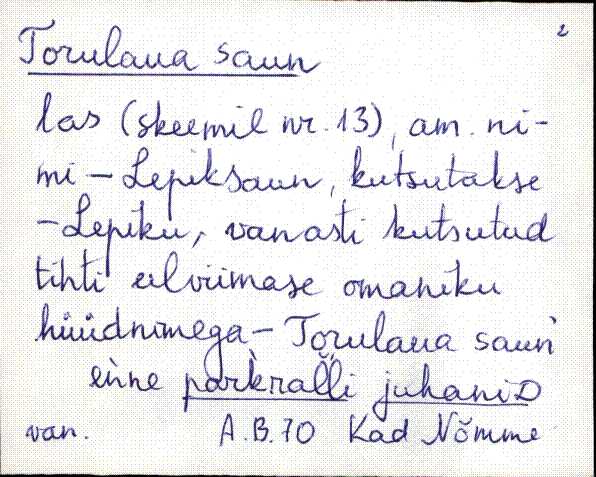 2
Torulaua saun
las (skeemil nr. 13), am. ni-
mi – Lepiksaun, kutsutakse
– Lepiku, vanasti kutsutud
tihti eelviimase omaniku
hüüdnimega – Torulaua saun
enne parkralli juhani
van. A.B.70 Kad Nõmme